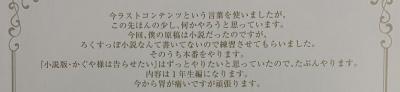 今ラストコンテンツという言葉を使いましたが、
この先ほんの少し、何かやろうと思っています。
今回、僕の原稿は小説だったのですが、
ろくすっぽ小説なんて書いてないので練習させてもらいました。
そのうち本番をやります。
『小説版・かぐや様は告らせたい』はずっとやりたいと思っていたので、たぶんやります。
内容は1年生編になります。
今から胃が痛いですが頑張ります。